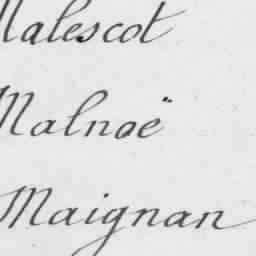 Malescot
Malnoë
Maignan